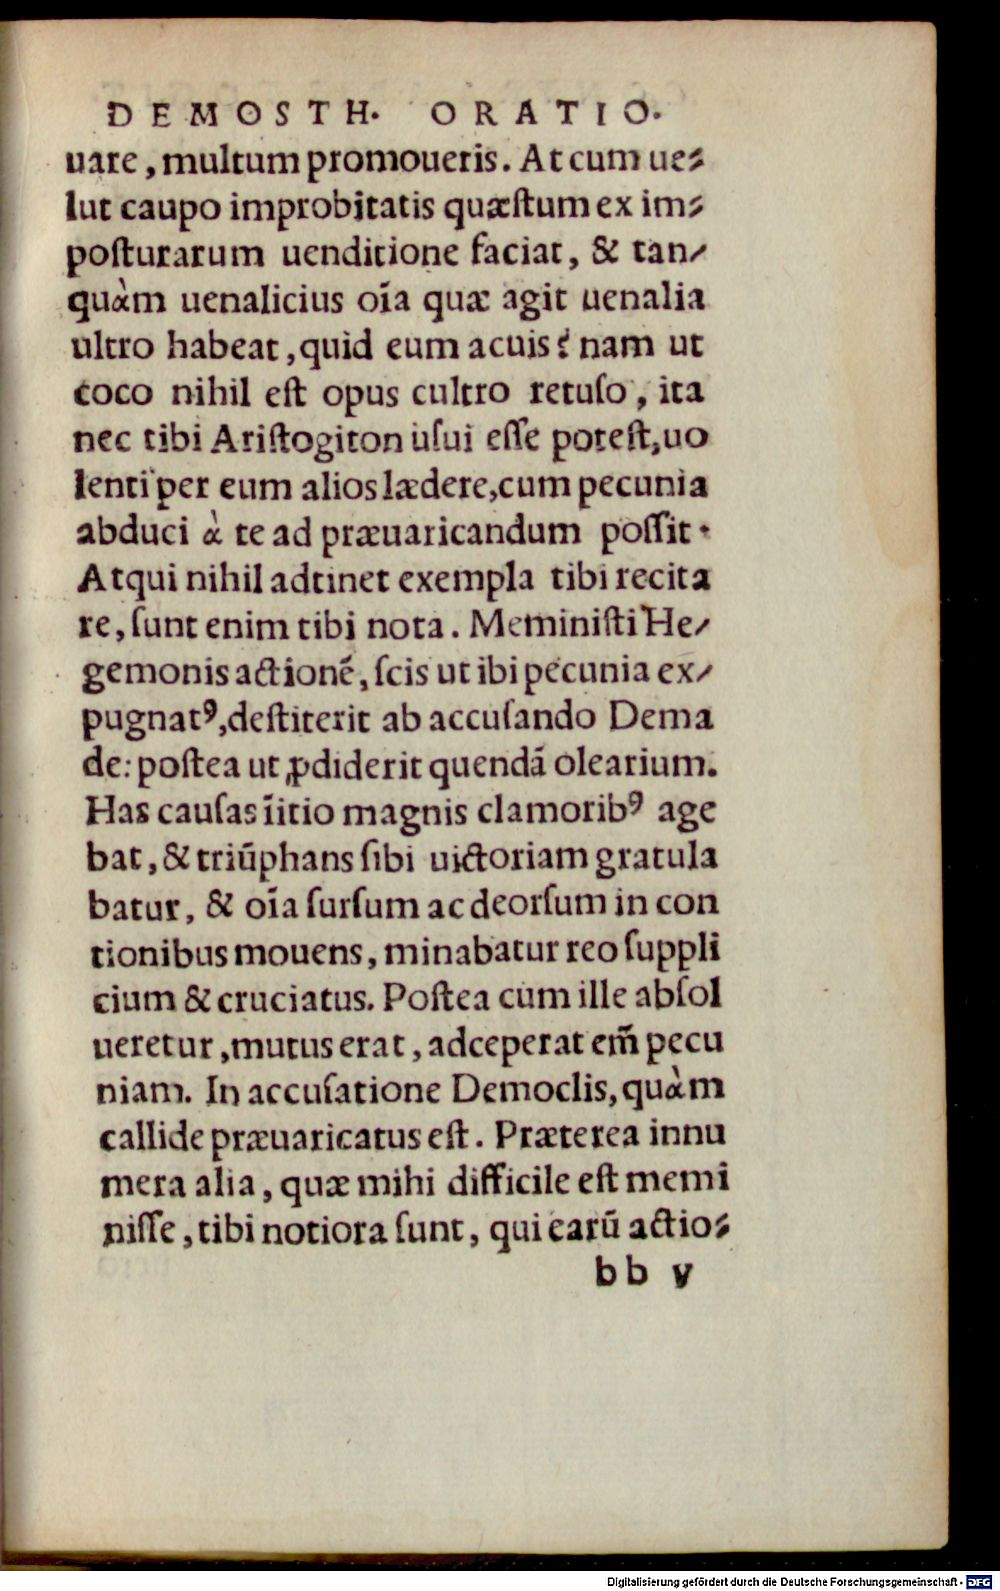 DEMOSTH. ORATIO.
uare, multum promoueris. At cum ue⸗
lut caupo improbitatis quæſtum ex im⸗
poſturarum uenditione faciat, & tan⸗
quàm uenalicius oı̄a quæ agit uenalia
ultro habeat, quid eum acuis? nam ut
coco nihil eſt opus cultro retuſo, ita
nec tibi Ariſtogiton uſui eſſe poteſt, uo
lenti per eum alios lædere, cum pecunia
abduci à te ad præuaricandum poſſit.
Atqui nihil adtinet exempla tibi recita
re, ſunt enim tibi nota. Meminiſti He⸗
gemonis actionē, ſcis ut ibi pecunia ex⸗
pugnatꝰ, deſtiterit ab accuſando Dema
de: poſtea ut ꝓdiderit quendā olearium.
Has cauſas ı̄itio magnis clamoribꝰ age
bat, & triūphans ſibi uictoriam gratula
batur, & oı̄a ſurſum ac deorſum in con
tionibus mouens, minabatur reo ſuppli
cium & cruciatus. Poſtea cum ille abſol
ueretur, mutus erat, adceperat em̃ pecu
niam. In accuſatione Democlis, quàm
callide præuaricatus eſt. Præterea innu
mera alia, quæ mihi difficile eſt memi
niſſe, tibi notiora ſunt, qui earū actio⸗
bb v
Digitalisierung gefördert durch die Deutsche Forschungsgemeinschaft - DFG